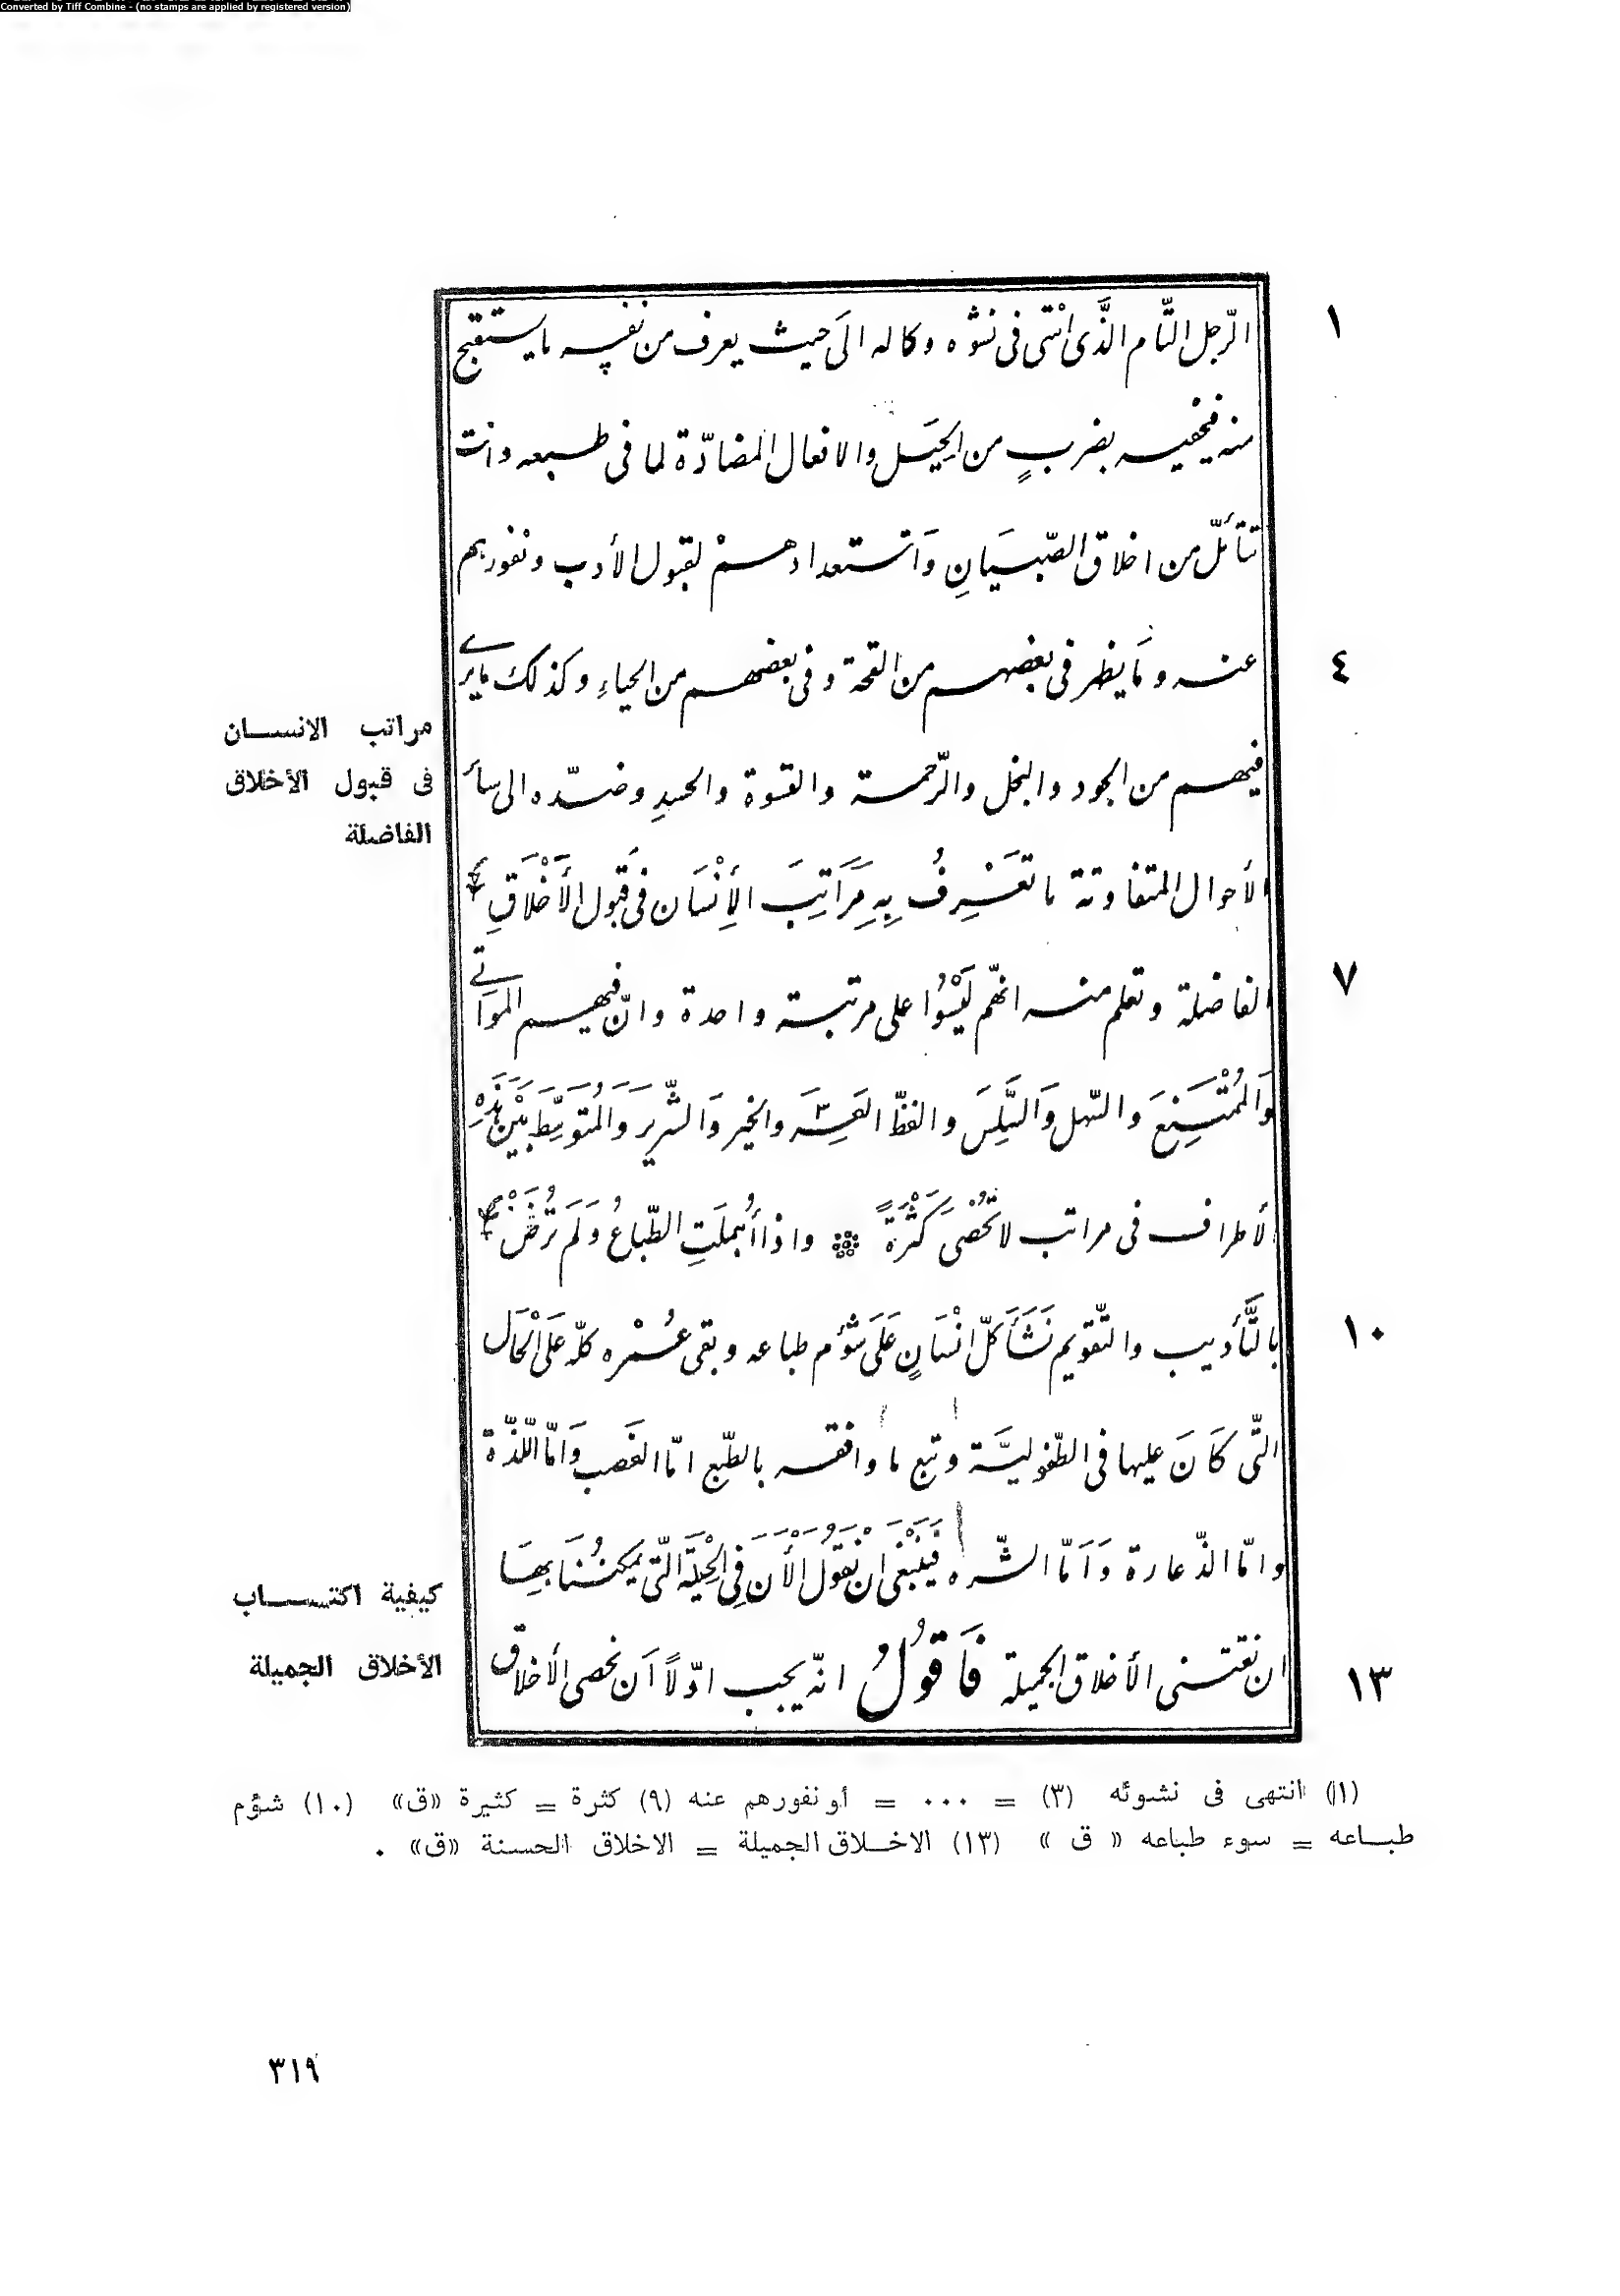 Converted by Tiff Combine - (no stamps are applied by registered version)
١
الرّجل التّام الذَّی انْتهى فى نشوُه وكماله الىَ حيث يعرف من نفسه مايستقبح
منه فيخفيه بضربٍ من الحِيَل والافعال المضادّة لما فى طبعه وانت
تتأمّل من اخلاق الصّبيَانِ وَاستعدادهمْ لقبول الأدب ونفورهم
٤
عنه ومَا يظهر فى بعضهم من القحة وفى بعضهم من الحياءِ وكذلك مايرى
مراتب الانسان
فى قبول الأخلاق
الفاضلة
فيهم من الجود والبخل والرّحمة والقسوة والحسدِ وضدّه الى سائر
الأحوال المتفاوتة ما تَعْرِفُ بِهِ مَرَاتِبَ الأِنْسَان فى قَبُول الأَخْلَاقِ
٧
الفاضلة وتعلم منه انّهم لَيْسُوُا على مرتبة واحدة وانّ فيهم المُوَاتى
وَالمُمْتَنِعَ والسّهل وَالسَّلِسَ والفظّ العَسِرَ والخيّر وَالشّرّيرَ وَالمُتَوَسِّطَ بَيْنَ هَذِهْ
الأطراف فى مراتب لا تُحْصىَ كَثْرَةً واذا أُهْمِلَتِ الطّباعُ وَلَم تُرَضْ
١٠
بالتَّأديب والتّقويم نَشَأَ كلّ انْسَانٍ عَلىَ شُؤم طباعه وبقى عُمْره كلّه عَلىَ الْحَال
التّى كَانَ عليها فى الطّفوليَّة وتبع ما وافقه بالطّبع امّا الغضب وَامّا اللّذّة
وامّا الذّعارة وَاَمّا الشّره فَيَنْبَغى ان نَقُوُلَ الأْنَ فىِ الْحِيلَةِ التّى يمكنُنَا بهَِا
كيفية اكتساب
الأخلاق الجميلة
١٣
ان نقتنى الأخلاق الجميلة فَاَقوُلُ انّه يجب اوّلاً اَن نحصى الأخلاق
(١) انتهى فى نشوئه (٣) = ٠٠٠ = أو نفورهم عنه (٩) كثرة = كثيرة «ق» (١٠) شؤم
طباعه = سوء طباعه « ق » (١٣) الاخلاق الجميلة = الاخلاق الحسنة «ق» ٠
٣١٩